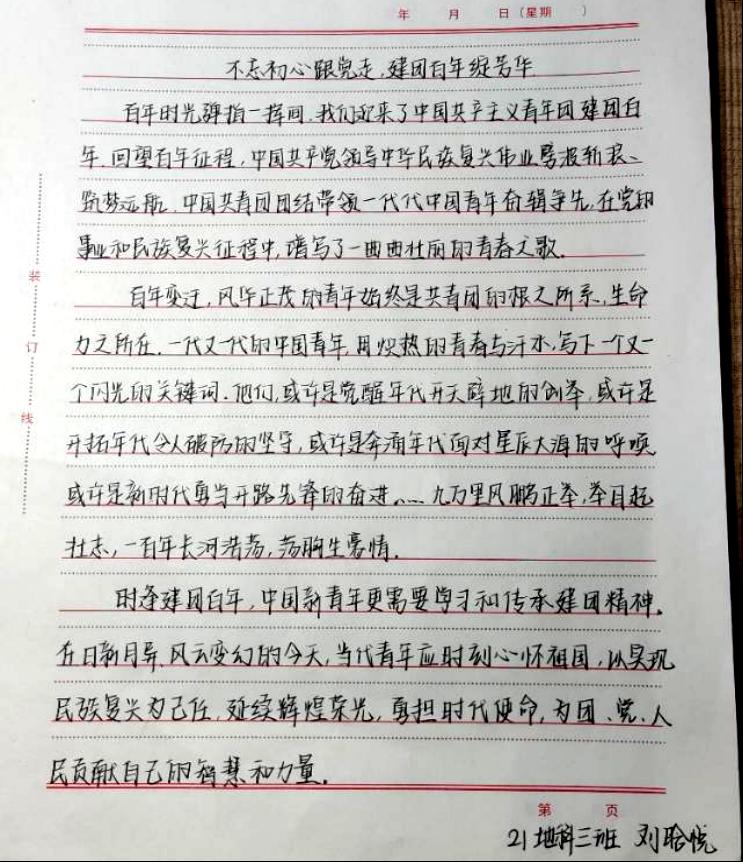 年 月 日(星期 )
不忘初心跟党走,建团百年绽芳华
百年时光弹指一挥间,我们迎来了中国共产主义青年团建团百
年.回望百年征程,中国共产党领导中华民族复兴伟业屡报新
筑梦远航.中国共青团团结带领一代代中国青年奋辑争先,在党的
事业和民族复兴征程中,谱写了一曲曲壮丽的青春之歌.
百年变迁,风华正茂的青年始终是共青团的根之所系,生命
力之所在.一代又一代的中国青年,用炽热的青春与汗水,写下一个又一
个闪光的关键词.他们,或许是觉醒年代开天辟地的创举,或许是
开拓年代令人破防的坚守,或许是奔涌年代面对星辰大海的呼唤
或许是新时代勇当开路先锋的奋进……九万里风鹏正举,举目起
壮志,一百年长河浩荡,荡胸生豪情.
时逢建团百年,中国新青年更需要学习和传承建团精神.
在日新月异、风云变幻的今天,当代青年应时刻心怀祖国,以实现
民族复兴为己任,延续辉煌荣光,勇担时代使命,为团、党、人
民贡献自己的智慧和力量.
装
订
线
第 页
21地科三班 刘晗悦